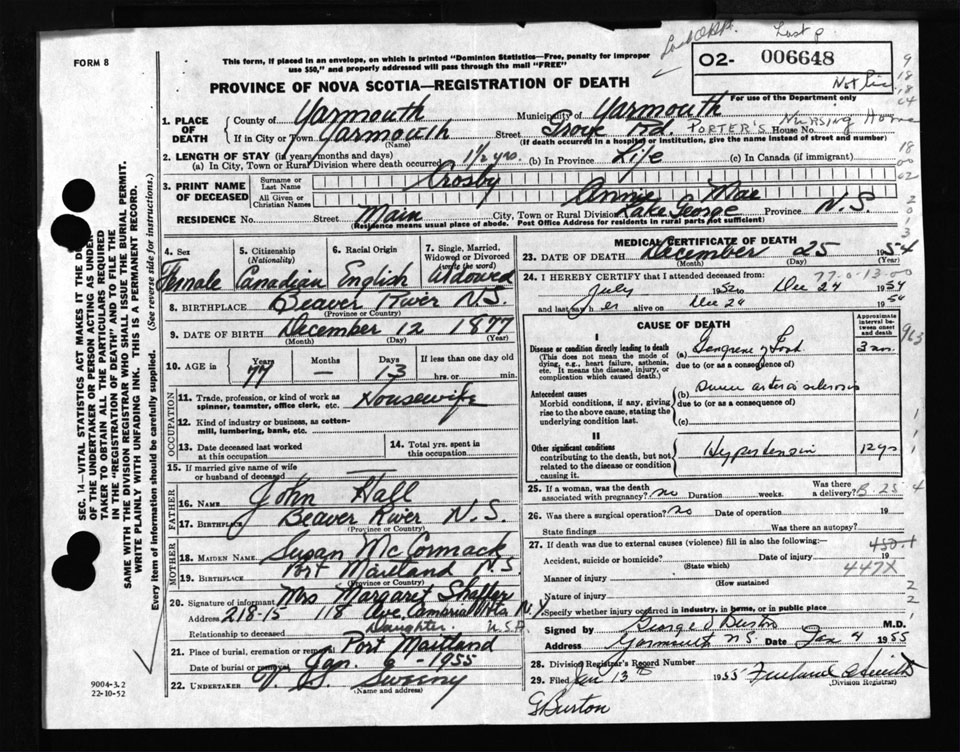 Last p
FORM 8
This form, if placed in an envelope, on which is printed "Dominion Statistics—Free, penalty for improper
use $50," and properly addressed will pass through the mail "FREE"
02- 006648
PROVINCE OF NOVA SCOTIA—REGISTRATION OF DEATH
For use of the Department only
1. PLACE OF DEATH
County of Yarmouth Municipality of Yarmouth
If in City or Town Yarmouth Street Rd. PORTER'S Nursing Home House No.
(Name) (If death occurred in a hospital or institution, give the name instead of street and number)
2. LENGTH OF STAY (in years, months and days)
(a) In City, Town or Rural Division where death occurred 1 1/2 yrs. (b) In Province Life (c) In Canada (if immigrant)
3. PRINT NAME OF DECEASED
Surname or Last Name Crosby
All Given or Christian Names Annie Mae
RESIDENCE No. Street Main City, Town or Rural Division Lake George Province N.S.
(Residence means usual place of abode. Post Office Address for residents in rural parts not sufficient)
SEC. 14—VITAL STATISTICS ACT MAKES IT THE
OF THE UNDERTAKER OR PERSON ACTING AS UNDER-
TAKER TO OBTAIN ALL THE PARTICULARS REQUIRED
IN THE "REGISTRATION OF DEATH" AND TO FILE THE
SAME WITH THE DIVISION REGISTRAR WHO SHALL ISSUE THE BURIAL PERMIT.
WRITE PLAINLY WITH UNFADING INK. THIS IS A PERMANENT RECORD.
Every item of information should be carefully supplied. (See reverse side for instructions.)
4. Sex Female
5. Citizenship (Nationality) Canadian
6. Racial Origin English
7. Single, Married, Widowed or Divorced (write the word) Widowed
8. BIRTHPLACE Beaver River N.S.
(Province or Country)
9. DATE OF BIRTH December 12 1877
(Month) (Day) (Year)
10. AGE in Years 77 Months — Days 13 If less than one day old hrs. or min.
OCCUPATION
11. Trade, profession, or kind of work as spinner, teamster, office clerk, etc. Housewife
12. Kind of industry or business, as cotton-mill, lumbering, bank, etc.
13. Date deceased last worked at this occupation
14. Total yrs. spent in this occupation
15. If married give name of wife or husband of deceased
FATHER
16. NAME John Hall
17. BIRTHPLACE Beaver River N.S.
(Province or Country)
MOTHER
18. MAIDEN NAME Susan McCormack
19. BIRTHPLACE Port Maitland N.S.
(Province or Country)
20. Signature of informant Mrs Margaret
Address 218-15 118 Ave. Cambria Hts N.Y.
Relationship to deceased Daughter. U.S.A.
21. Place of burial, cremation or removal Port Maitland
Date of burial or removal Jan. 6 - 1955
22. UNDERTAKER V. S. Sweeny
(Name and address)
MEDICAL CERTIFICATE OF DEATH
23. DATE OF DEATH December 25 1954
(Month) (Day) (Year)
24. I HEREBY CERTIFY that I attended deceased from:
July 1952 to Dec 24 1954
and last saw her alive on Dec 24 1954
CAUSE OF DEATH
Approximate interval between onset and death
I
Disease or condition directly leading to death
(This does not mean the mode of dying, e.g. heart failure, asthenia, etc. It means the disease, injury, or complication which caused death.)
(a) Gangrene of foot 3 mos.
due to (or as a consequence of)
Antecedent causes
Morbid conditions, if any, giving rise to the above cause, stating the underlying condition last.
(b) arteriosclerosis
due to (or as a consequence of)
(c)
II
Other significant conditions
contributing to the death, but not related to the disease or condition causing it.
Hypertension 12 yrs
25. If a woman, was the death associated with pregnancy? no Duration weeks. Was there a delivery?
26. Was there a surgical operation? no Date of operation 19
State findings Was there an autopsy?
27. If death was due to external causes (violence) fill in also the following:—
Accident, suicide or homicide? Date of injury 19
(State which)
450.1
447X
Manner of injury
(How sustained)
Nature of injury
Specify whether injury occurred in industry, in home, or in public place
Signed by George Burton M.D.
Address Yarmouth N.S. Date Jan 4 1955
28. Division Registrar's Record Number
29. Filed Jan 13 1955
(Division Registrar)
9004-3.2
22-10-52
G Burton